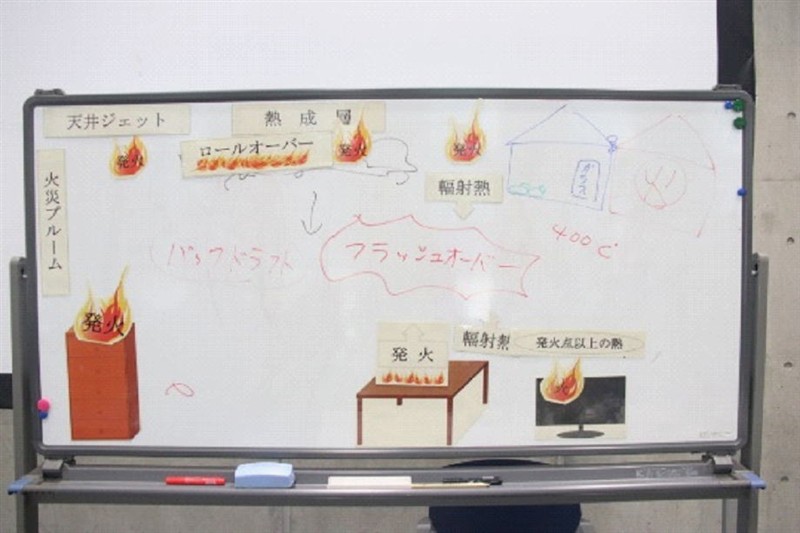 天井ジェット
熱成層
発火
ロールオーバー
発火
発火
火災プルーム
輻射熱
ガラス
400℃
バックドラフト
フラッシュオーバー
発火
発火
輻射熱
発火点以上の熱
火